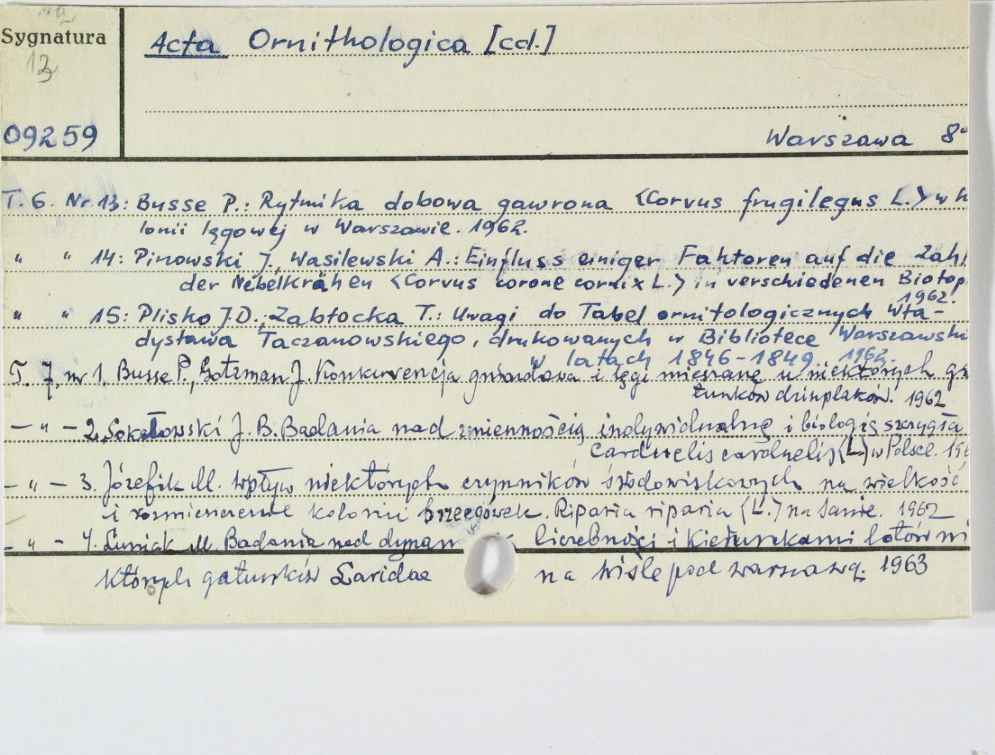 Sygnatura
Acta Ornithologica [cd.]
13
09259
Warszawa 8°
T. 6. Nr 13: Busse P.: Rytmika dobowa gawrona <Corvus frugilegus L.> w k
lonii lęgowej w Warszawie. 1962.
" " 14: Pinowski J., Wasilewski A.: Einfluss einiger Faktoren auf die Zahl
der Nebelkrähen <Corvus corone cornix L.> in verschiedenen Biotop
1962.
" " 15: Plisko J.D., Zabłocka T.: Uwagi do Tabel ornitologicznych Wła-
dysława Taczanowskiego, drukowanych w Bibliotece Warszawski
w latach 1846-1849. 1962.
T. 7, nr 1. Busse P., Gotzman J. Konkurencja gniazdowa i lęgi mieszane u niektórych ga
tunków dziuplaków. 1962
- " - 2. Sokołowski J. B. Badania nad zmiennością indywidualną i biologią szczygła
Carduelis carduelis (L.) w Polsce. 196
- " - 3. Józefik M. Wpływ niektórych czynników środowiskowych na wielkość
i rozmieszczenie kolonii brzegówek. Riparia riparia (L.) na Sanie. 1962
- " - 4. Luniak M. Badania nad dynam liczebności i kierunkami lotów ni
których gatunków Laridae na Wiśle pod Warszawą. 1963